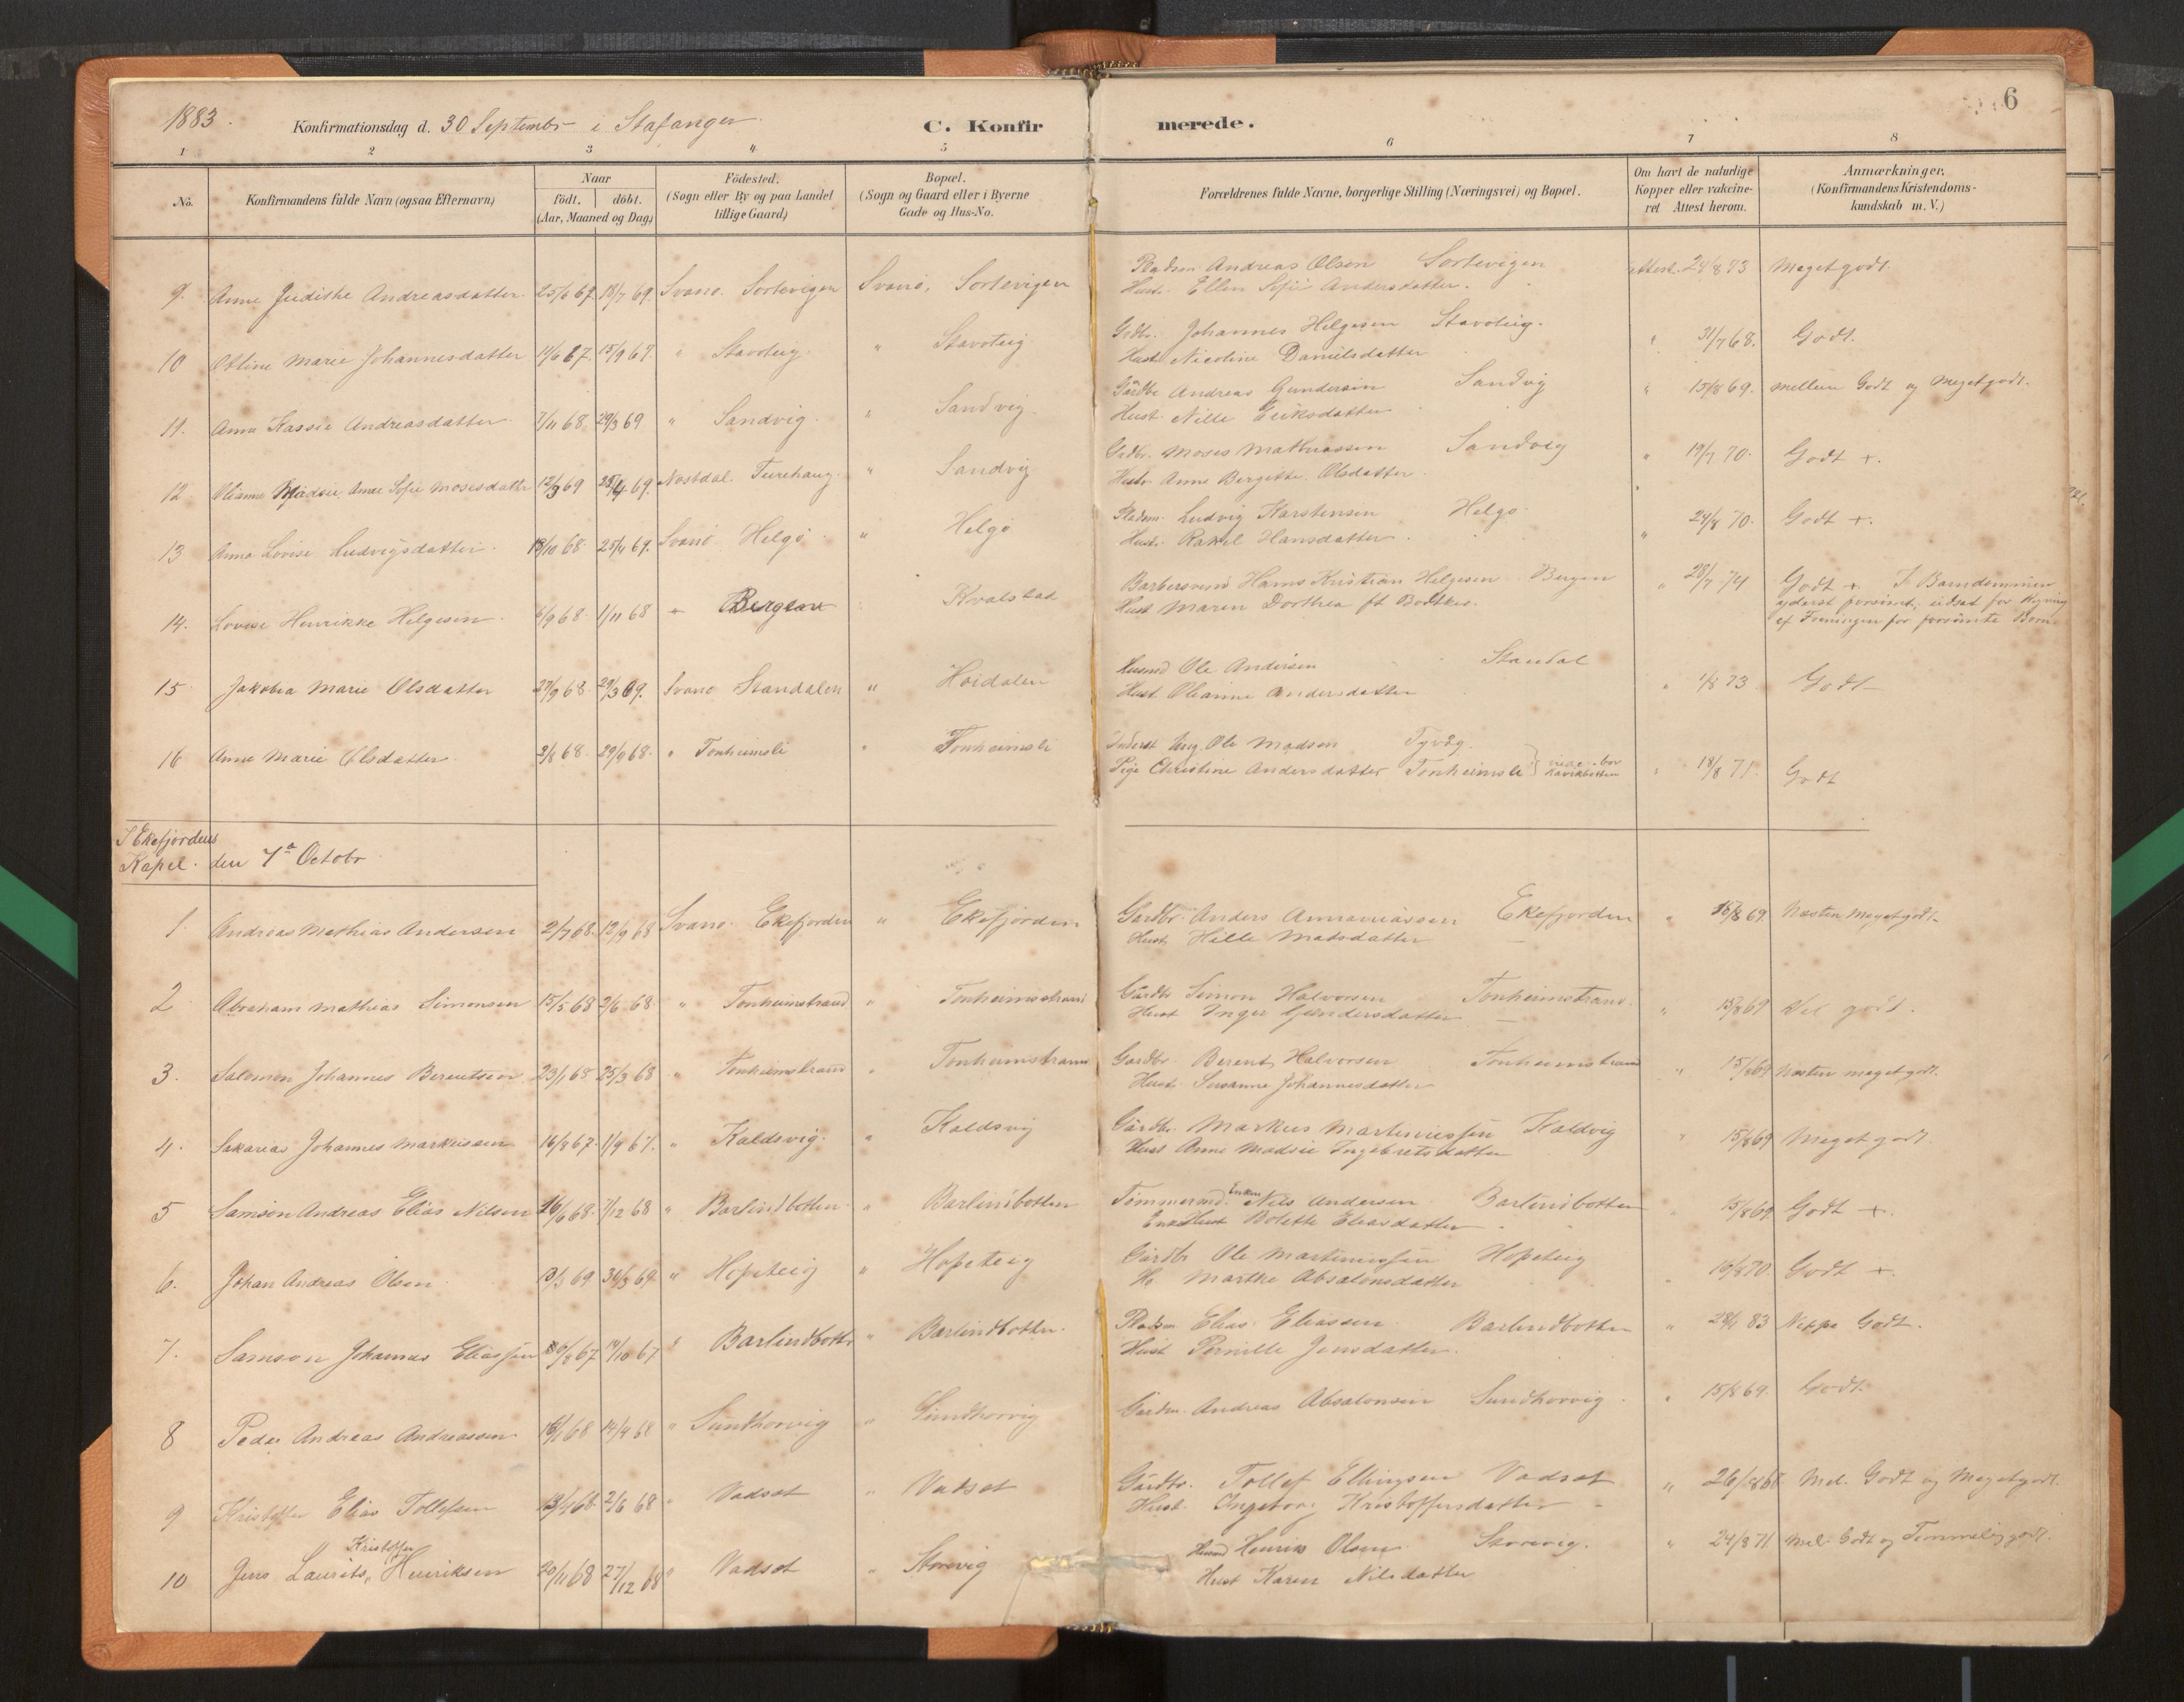 1883. Konfirmationsdag d. 30 Septembr i Stafanger. C. Konfir merede. 6
1 2 3 4 5 6 7 8
No. Konfirmandens fulde Navn (ogsaa Efternavn) Naar Födested. Bopæl. Forældrenes fulde Navne, borgerlige Stilling (Næringsvei) og Bopæl. Om havt de naturlige Anmærkninger.
födt. döbt. (Sogn eller By og paa Landet (Sogn og Gaard eller i Byerne Kopper eller vakcine- (Konfirmandens Kristendoms-
(Aar, Maaned og Dag) tillige Gaard) Gade og Hus-No. ret Attest herom. kundskab m. V.)
9. Anne Judithe Andreasdatter 25/6 69 18/7 69. Svanø. Sortevigen Svanø, Sortevigen Pladsm. Andreas Olsen Sortevigen attest. 24/8 73 Megetgodt.
Hust. Ellen Sofie Andersdatter.
10 Ottine Marie Johannesdatter 11/6 67. 15/9 67. " Stavøteig. " Stavøteig Gdbr. Johannes Helgesen Stavøteig. " 31/7 68. Godt.
Hust Nicoline Danielsdatter
11. Anna Kassie Andreasdatter 7/11 68 29/3 69 " Sandvig. " Sandvig. Gårdbr Andreas Gundersen Sandvig " 15/8 69. mellem Godt og Megetgodt.
Hust. Nille Eriksdatter
12 Olianna Madsie, Anne Sofie Mosesdatter 12/3 69 25/4 69. Nøstdal. Turehaug. " Sandvig Gdbr. Moses Mathiassen Sandvig " 19/7 70. Godt +.
Hustr Anne Bergitte Olsdatter
13 Anna Lovise Ludvigsdatter. 18/10 68 25/4 69. Svanø Helgø " Helgø Pladsm. Ludvig Karstensen Helgø. " 24/8 70. Godt +.
Hustr. Rakel Hansdatter.
14. Lovise Henrikke Helgesen. 6/9 68 1/11 68 " Bergen Kvalstad Barbersvend Hans Kristian Helgesen Bergen " 28/7 74 Godt + I Barndommen
Hust Maren Dorthea ft Bødtker. yderst forsømt, udsat for
af Foreningen for forsømte Børn
15 Jakobea Marie Olsdatter 27/9 68. 29/3 69. Svanø Standalen " Høidalen Husmd Ole Andersen Standal " 1/8 73 Godt
Hust Olianne Andersdatter
16 Anne Marie Olsdatter 3/8 68. 29/9 68. " Tonheimsli " Tonheimsli Inderst Ung. Ole Madsen Tyvåg.
Pige Christine Andersdatter Tonheimsli " 18/8 71. Godt
I Ekefjordens
Kapel. den 7de Octobr
1. Andreas Mathias Andersen 2/7 68. 12/9 68 Svanø. Ekefjorden " Ekefjorden Gårdbr. Anders Annaniassen Ekefjorden " 15/8 69 Næsten megetgodt.
Hust. Hille Matsdatter
2 Abraham Mathias Simonsen 15/5 68 2/6 68. " Tonheimstrand " Tonheimsstrand Gårdbr Simon Halvorsen Tonheimstrand. " 15/8 69 Vel godt.
Hust Inger Gundersdatter
3. Salomon Johannes Berentsen 23/1 68 25/3 68 " Tonheimstrand " Tonheimstrand Gårdbr. Berent Halvorsen Tonheimstrand " 15/8 69 Næsten megetgodt.
Hust. Susanne Johannesdatter
4. Sakarias Johannes Markussen 16/8 67. 1/9 67. " Kaldsvig. " Kaldsvig Gårdbr. Markus Martinussen Kaldvig " 15/8 69 Meget godt.
Hust Anne Madsie Ingebretsdatter
5 Samson Andreas Elias Nilsen 16/6 68. 7/12 68 " Barlindbotten " Barlindbotten Tømmermd. Enkm Nils Andersen Barlindbotten " 15/8 69 Godt +.
Hust Bolette Eliasdatter
6. Johan Andreas Olsen 13/3 69. 30/3 69. " Hopeteig " Hopeteig Gårdbr Ole Martinussen Hopeteig " 16/8 70 Godt +.
H. Marthe Absalonsdatter
7. Samson Johannes Eliassen 30/8 67 14/10 67 " Barlindbotten " Barlindbotten. Pladsm Elias Eliassen. Barlindbotten " 28/1 83 Neppe Godt.
Hust Pernille Jensdatter.
8 Peder Andreas Andreassen 16/1 68 14/4 68 " Sundhorvig " Sundhorvig Gårdm. Andreas Absalonsen Sundhorvig. " 15/8 69. Godt.
9 Kristoffer Elias Tollefsen 13/4 68. 2/6 68 " Vadset " Vadset Gårdbr. Tollef Ellingsen Vadset " 26/8 68 Mel. Godt og Megetgodt.
Hust. Ingebor Kristoffersdatter
10 Jens Laurits Kristoffer Henriksen 20/11 68 27/12 68 " Vadset " Storevig Husmd Henrik Olsen Storevig. " 24/8 71 Mel. Godt og Temmelig godt.
Hust Karen Nilsdatter